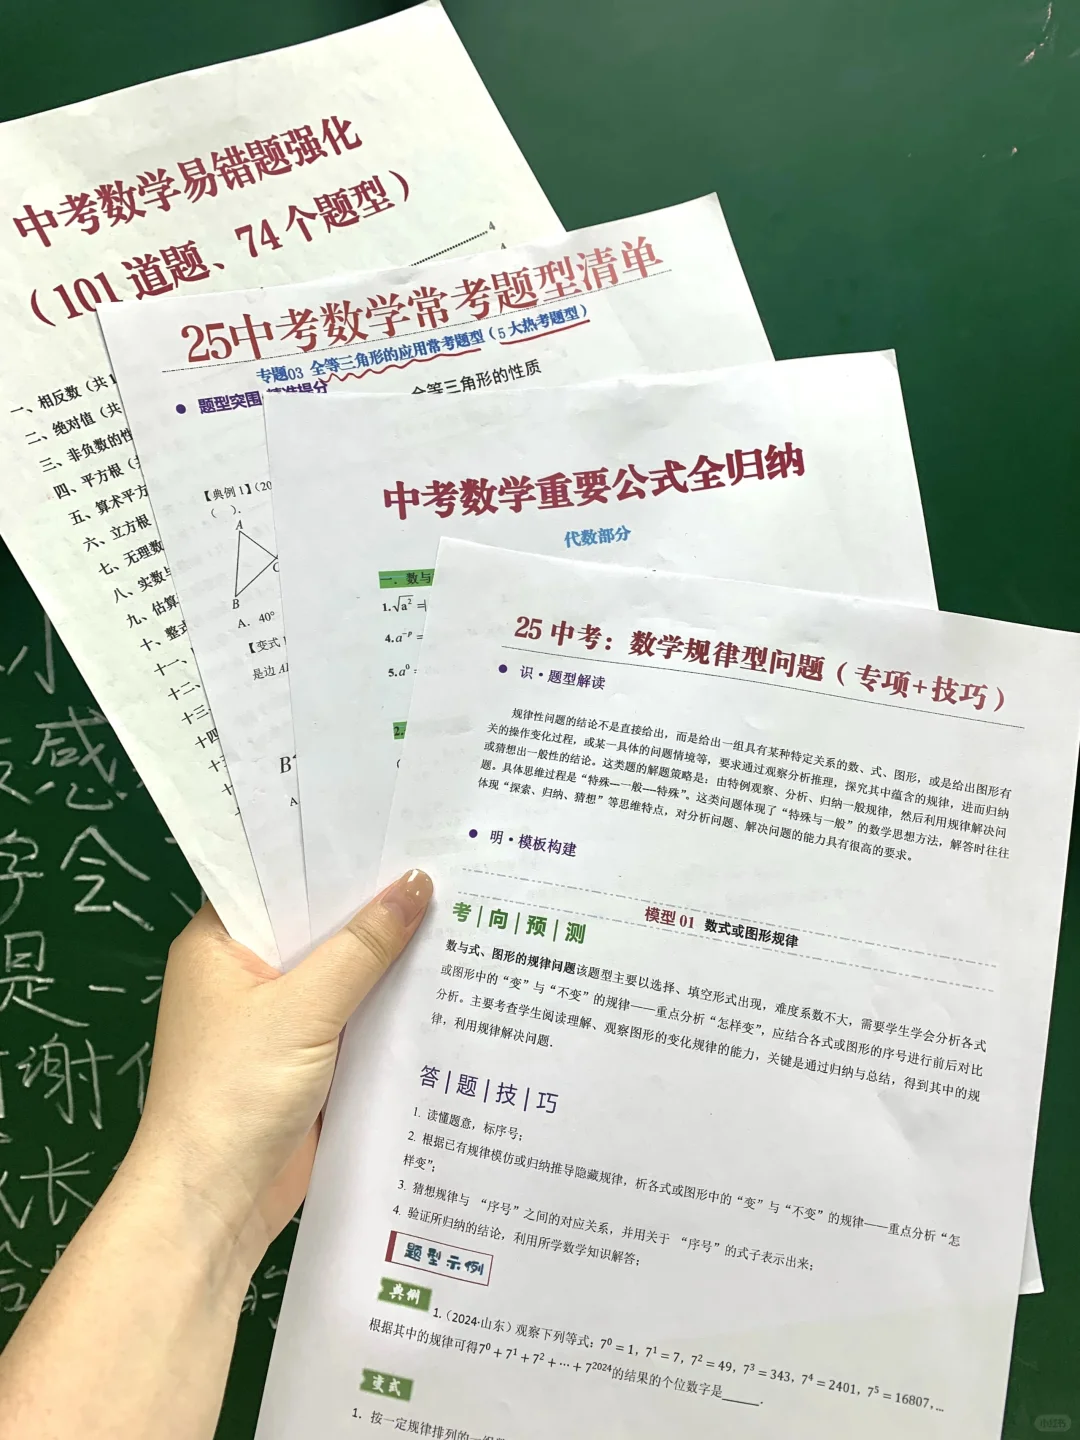 中考数学易错题强化
（101道题、74个题型）
4
4
一、相反数（共1
二、绝对值（共
三、非负数的性
四、平方根（
五、算术平方
六、立方根
七、无理数
八、实数与
九、估算
十、整式
十一、
十二、
十三
十四
25中考数学常考题型清单
专题03 全等三角形的应用常考题型（5大热考题型）
题型突围·精准提分
全等三角形的性质
【典例1】(20
（ ）.
A
B
C
A. 40°
【变式1
是边A
B
A
中考数学重要公式全归纳
代数部分
一. 数与
1.√a² =|
4.a⁻ᵖ =
5.a⁰ =
2.
25 中考：数学规律型问题（专项+技巧）
识·题型解读
规律性问题的结论不是直接给出，而是给出一组具有某种特定关系的数、式、图形，或是给出图形有
关的操作变化过程，或某一具体的问题情境等，要求通过观察分析推理，探究其中蕴含的规律，进而归纳
或猜想出一般性的结论。这类题的解题策略是：由特例观察、分析、归纳一般规律，然后利用规律解决问
题。具体思维过程是“特殊—一般—特殊”。这类问题体现了“特殊与一般”的数学思想方法，解答时往往
体现“探索、归纳、猜想”等思维特点，对分析问题、解决问题的能力具有很高的要求。
明·模板构建
模型 01 数式或图形规律
考|向|预|测
数与式、图形的规律问题该题型主要以选择、填空形式出现，难度系数不大，需要学生学会分析各式
或图形中的“变”与“不变”的规律——重点分析“怎样变”，应结合各式或图形的序号进行前后对比
分析。主要考查学生阅读理解、观察图形的变化规律的能力，关键是通过归纳与总结，得到其中的规
律，利用规律解决问题.
答|题|技|巧
1. 读懂题意，标序号；
2. 根据已有规律模仿或归纳推导隐藏规律，析各式或图形中的“变”与“不变”的规律——重点分析“怎
样变”；
3. 猜想规律与 “序号”之间的对应关系，并用关于 “序号”的式子表示出来；
4. 验证所归纳的结论，利用所学数学知识解答；
题型示例
典例
1.（2024·山东）观察下列等式：7⁰ = 1，7¹ = 7，7² = 49，7³ = 343，7⁴ = 2401，7⁵ = 16807，…
根据其中的规律可得7⁰ + 7¹ + 7² + ⋯ + 7²⁰²⁴的结果的个位数字是______.
变式
1. 按一定规律排列的一组
小
感
字会
是一
谢
长
小红书